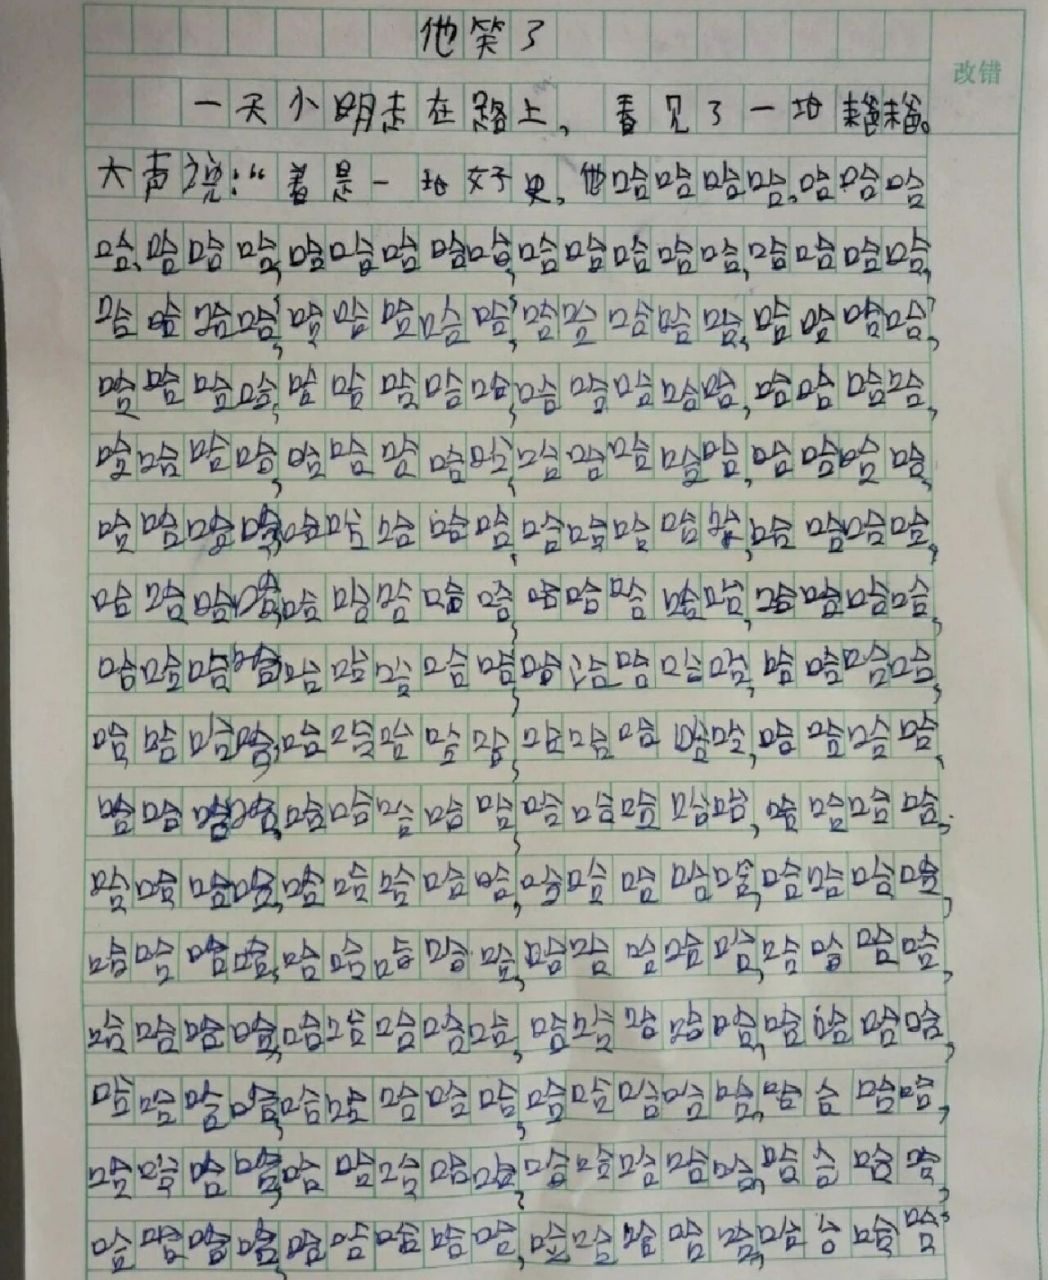 他笑了
改错
一天小明走在路上，看见了一地
大声说：“着是一地好史，他哈哈哈哈，哈哈哈
哈，哈哈哈，哈哈哈哈哈，哈哈哈哈哈，哈哈哈哈，
哈哈哈哈，哈哈哈哈哈，哈哈哈哈哈，哈哈哈哈，
哈哈哈哈，哈哈哈哈哈，哈哈哈哈哈，哈哈哈哈，
哈哈哈哈，哈哈哈哈哈，哈哈哈哈哈，哈哈哈哈，
哈哈哈哈，哈哈哈哈哈，哈哈哈哈哈，哈哈哈哈，
哈哈哈哈，哈哈哈哈哈，哈哈哈哈哈，哈哈哈哈，
哈哈哈哈，哈哈哈哈哈，哈哈哈哈哈，哈哈哈哈，
哈哈哈哈，哈哈哈哈哈，哈哈哈哈哈，哈哈哈哈，
哈哈哈哈，哈哈哈哈哈，哈哈哈哈哈，哈哈哈哈，
哈哈哈哈，哈哈哈哈哈，哈哈哈哈哈，哈哈哈哈，
哈哈哈哈，哈哈哈哈哈，哈哈哈哈哈，哈哈哈哈，
哈哈哈哈，哈哈哈哈哈，哈哈哈哈哈，哈哈哈哈，
哈哈哈哈，哈哈哈哈哈，哈哈哈哈哈，哈哈哈哈，
哈哈哈哈，哈哈哈哈哈，哈哈哈哈哈，哈哈哈哈，
哈哈哈哈，哈哈哈哈哈，哈哈哈哈哈，哈哈哈哈，